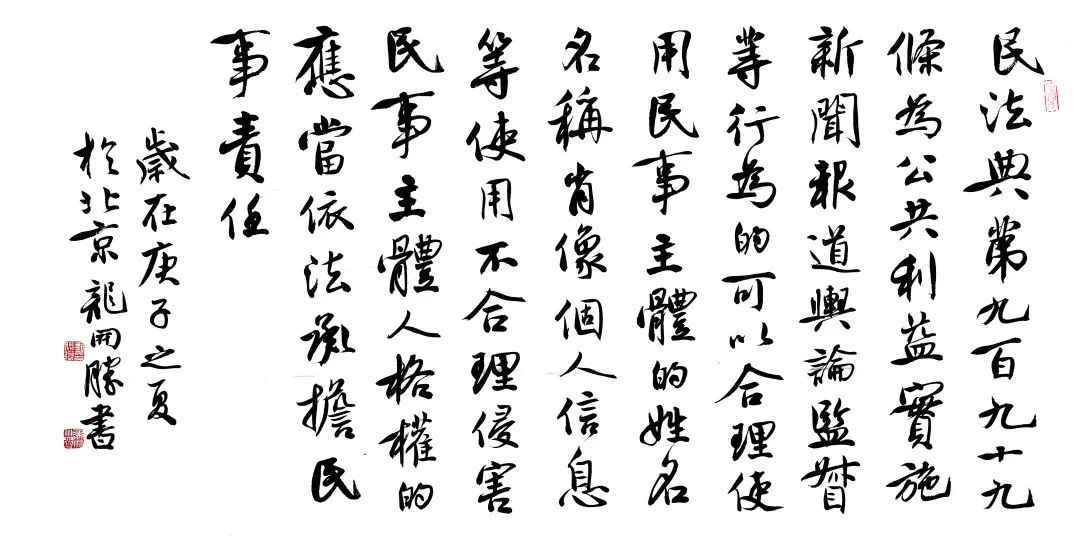 民法典第九百九十九
條為公共利益實施
新聞報道輿論監督
等行為的可以合理使
用民事主體的姓名
名稱肖像個人信息
等使用不合理侵害
民事主體人格權的
應當依法承擔民
事責任
歲在庚子之夏
於北京龍開勝書